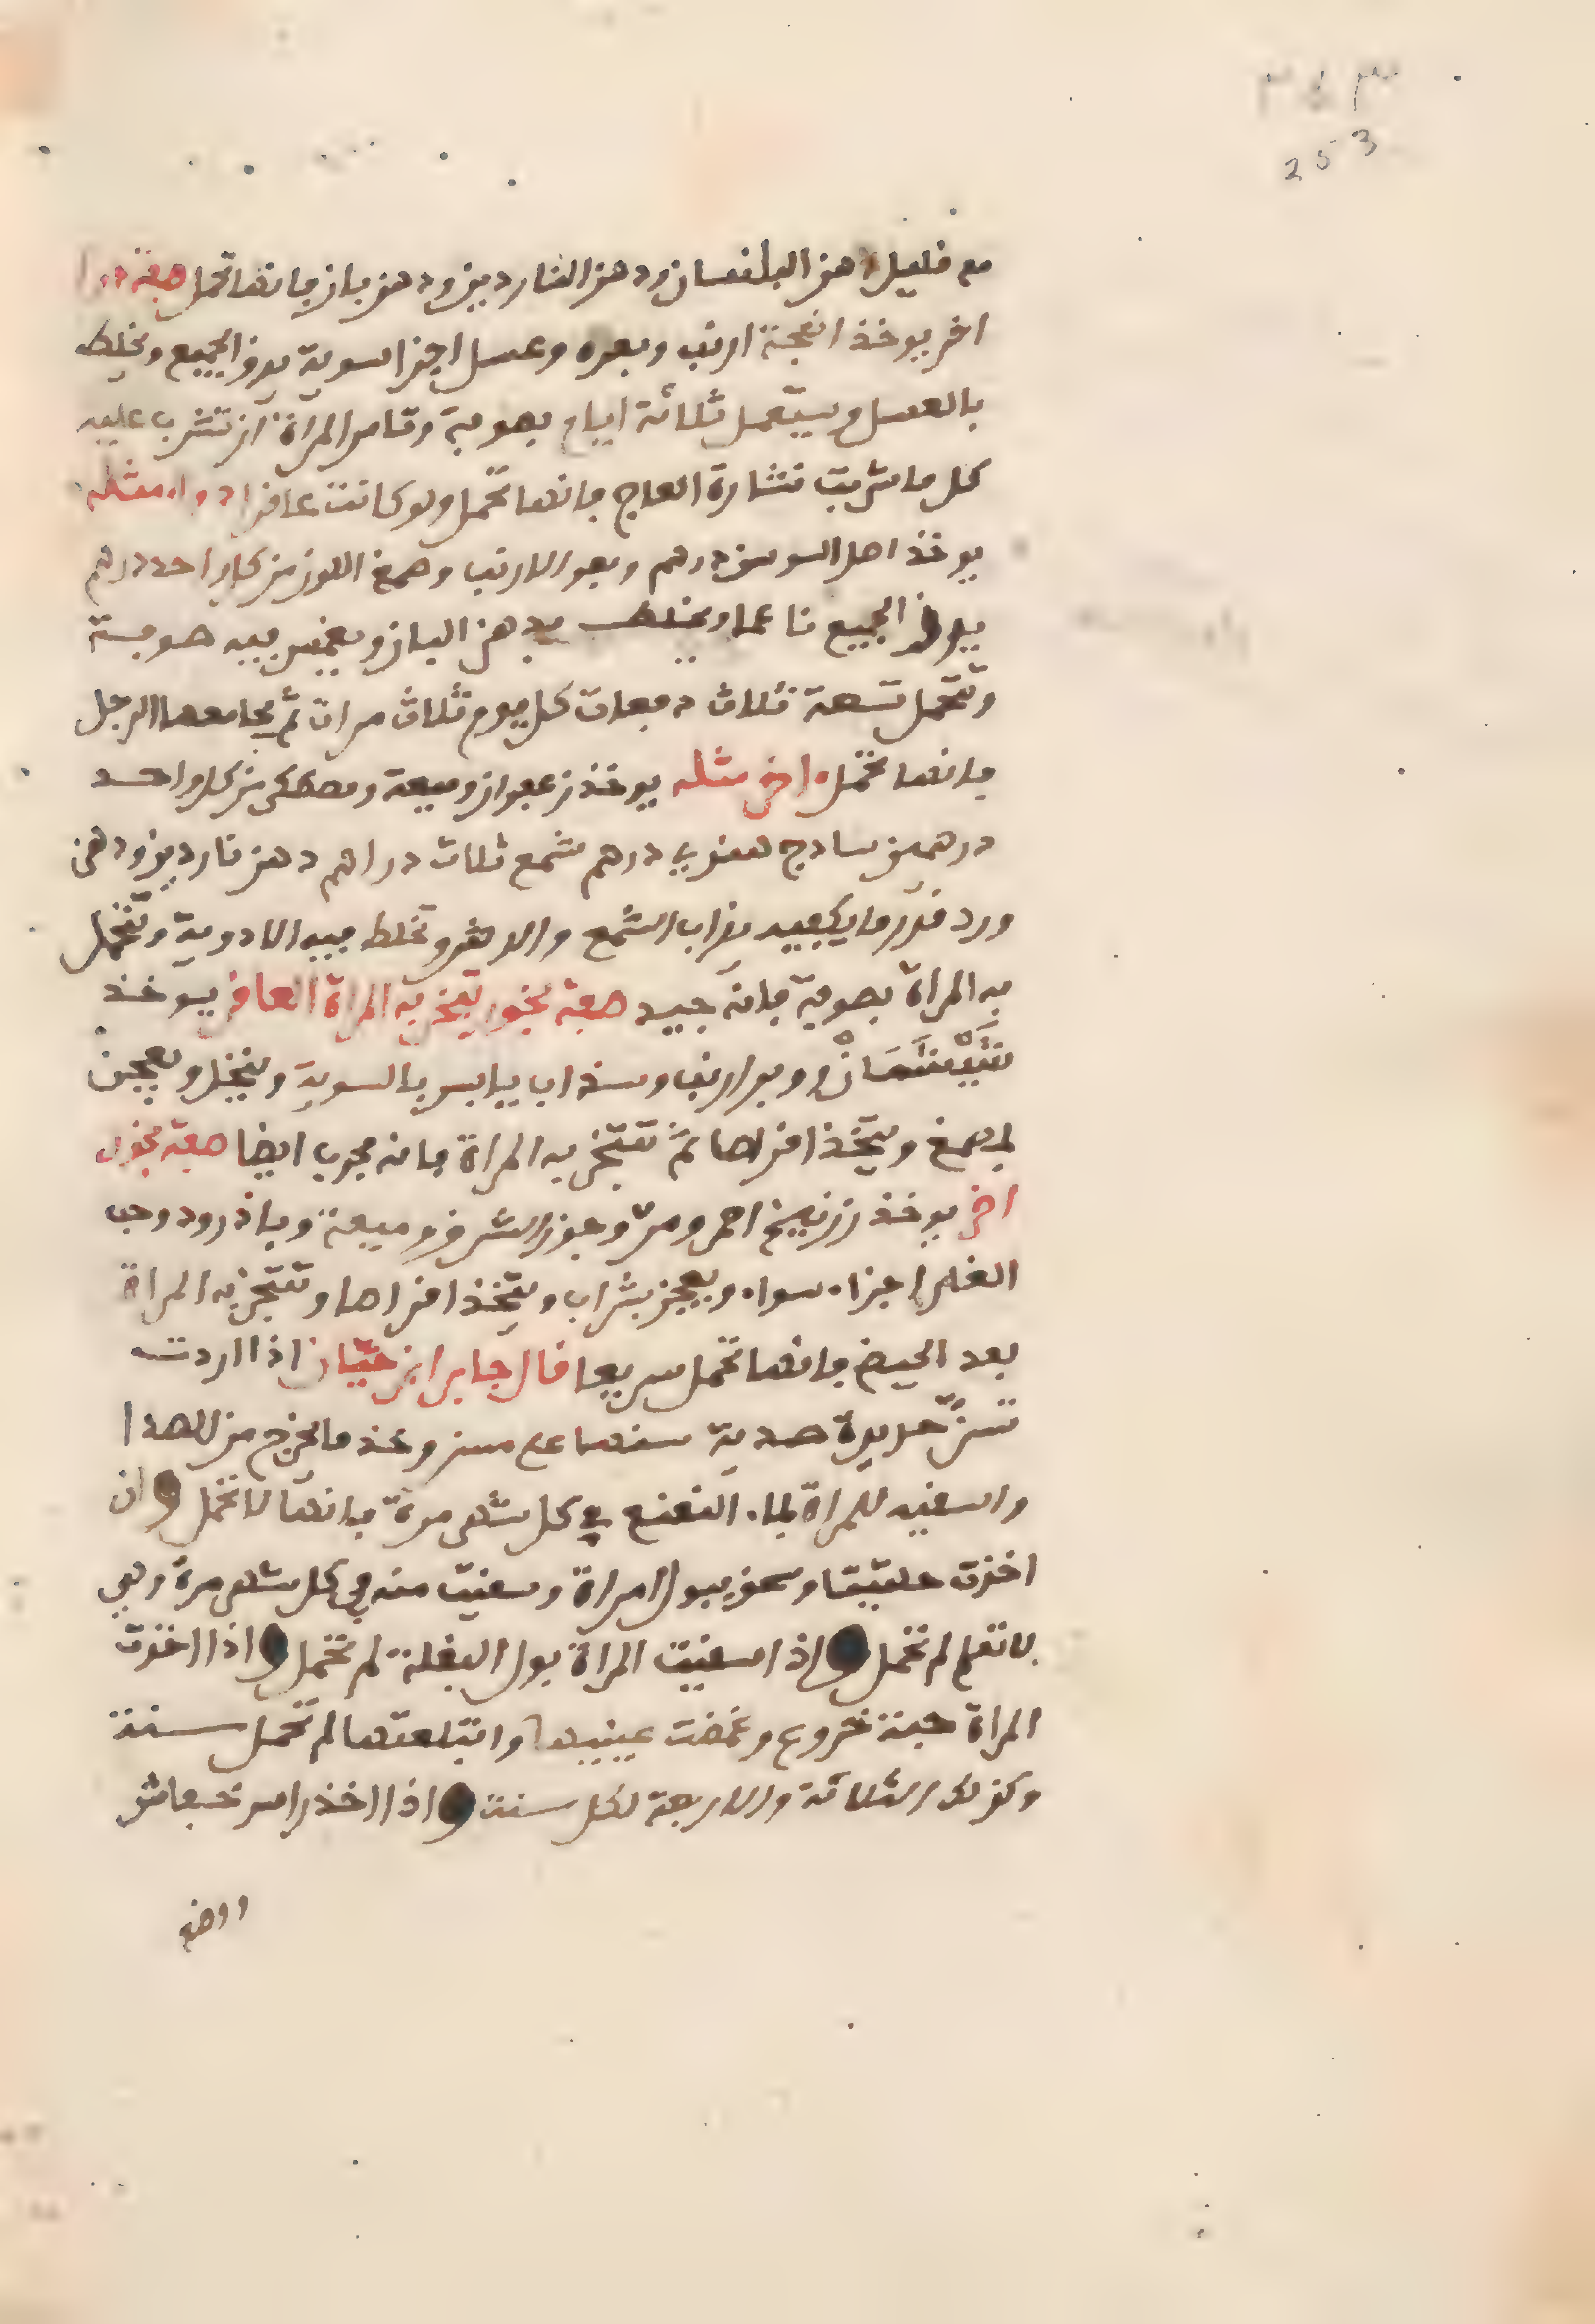 ٣٤٣
253
مع قليل دهن البلنسان ودهن الناردين ودهن بان فانها تحمل صفة دوا
اخر يوخذ انفجة ارنب وبعره وعسل اجزا سوية يدق الجميع ويخلط
بالعسل ويستعمل ثلاثة ايام بصوفة وتامر المراة ان تشرب عليه
كل ما شربت نشارة العاج فانها تحمل ولو كانت عاقرا دواء مثله
يوخذ اصل السوسن درهم وبعر الارنب وصمغ اللوز من كل واحد درهم
يدق الجميع ناعما ويخلط بدهن البان ويغمس فيه صوفة
وتتحمل تسعة ثلاث دفعات كل يوم ثلاث مرات ثم يجامعها الرجل
فانها تحمل اخر مثله يوخذ زعفران وميعة ومصطكى من كل واحد
درهمين سادج هندي درهم شمع ثلاث دراهم دهن ناردين ودهن
ورد قدر ما يكفيه يذاب الشمع والدهن وتخلط فيه الادوية وتتحمل
به المراة بصوفة فانه جيد صفة بخور يتبخر به المراة العاقر يوخذ
وبر ارنب وسذاب يابس بالسوية وينخل ويعجن
بصمغ ويتخذ اقراصا ثم تتبخر به المراة فانه مجرب ايضا صفة بخور
اخر يوخذ زرنيخ احمر ومر وجوز السرو وميعة وباذرود وحب
الغار اجزاء سواء ويعجن بشراب ويتخذ اقراصا وتتبخر به المراة
بعد الحيض فانها تحمل سريعا قال جابر ابن حيان اذا اردت
حديدة صدية سنها على مسن وخذ ما يخرج من الصدا
واسقيه للمراة بماء النعنع في كل شهر مرة فانها لا تحمل وان
اخذت حلتيتا وسحق ببول امراة وسقيت منه في كل شهر مرة وهي
لا تعلم لم تحمل واذا سقيت المراة بول البغلة لم تحمل واذا اخذت
المراة حبة خروع وغمضت عينيها وابتلعتها لم تحمل سنة
وكذلك الثلاثة والاربعة لكل سنة واذا اخذ راس خفاش